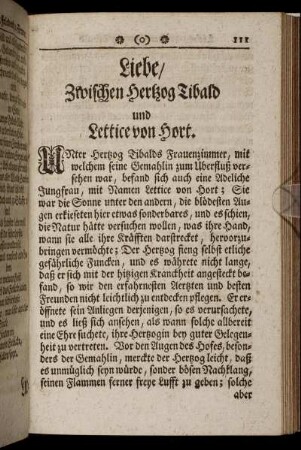 ❀ (o) ❀ 111
Liebe/
Zwischen Hertzog Tibald
und
Lettice von Hort.
UNter Hertzog Tibalds Frauenzimmer, mit
welchem seine Gemahlin zum Uberfluß ver-
sehen war, befand sich auch eine Adeliche
Jungfrau, mit Namen Lettice von Hort; Sie
war die Sonne unter den andern, die blödesten Au-
gen erkieseten hier etwas sonderbares, und es schien,
die Natur hätte versuchen wollen, was ihre Hand,
wann sie alle ihre Kräfften darstreckt, hervorzu-
bringen vermöchte; Der Hertzog fieng selbst etliche
gefährliche Funcken, und es währete nicht lange,
daß er sich mit der hitzigen Kranckheit angesteckt be-
fand, so wir den erfahrnesten Aertzten und besten
Freunden nicht leichtlich zu entdecken pflegen. Er er-
öffnete sein Anliegen derjenigen, so es verursachete,
und es ließ sich ansehen, als wann solche allbereit
eine Ehr suchete, ihre Hertzogin bey guter Gelegen-
heit zu vertreten. Vor den Augen des Hofes, beson-
ders der Gemahlin, merckte der Hertzog leicht, daß
es unmüglich seyn würde, sonder bösen Nachklang,
seinen Flammen ferner freye Lufft zu geben; solche
aber